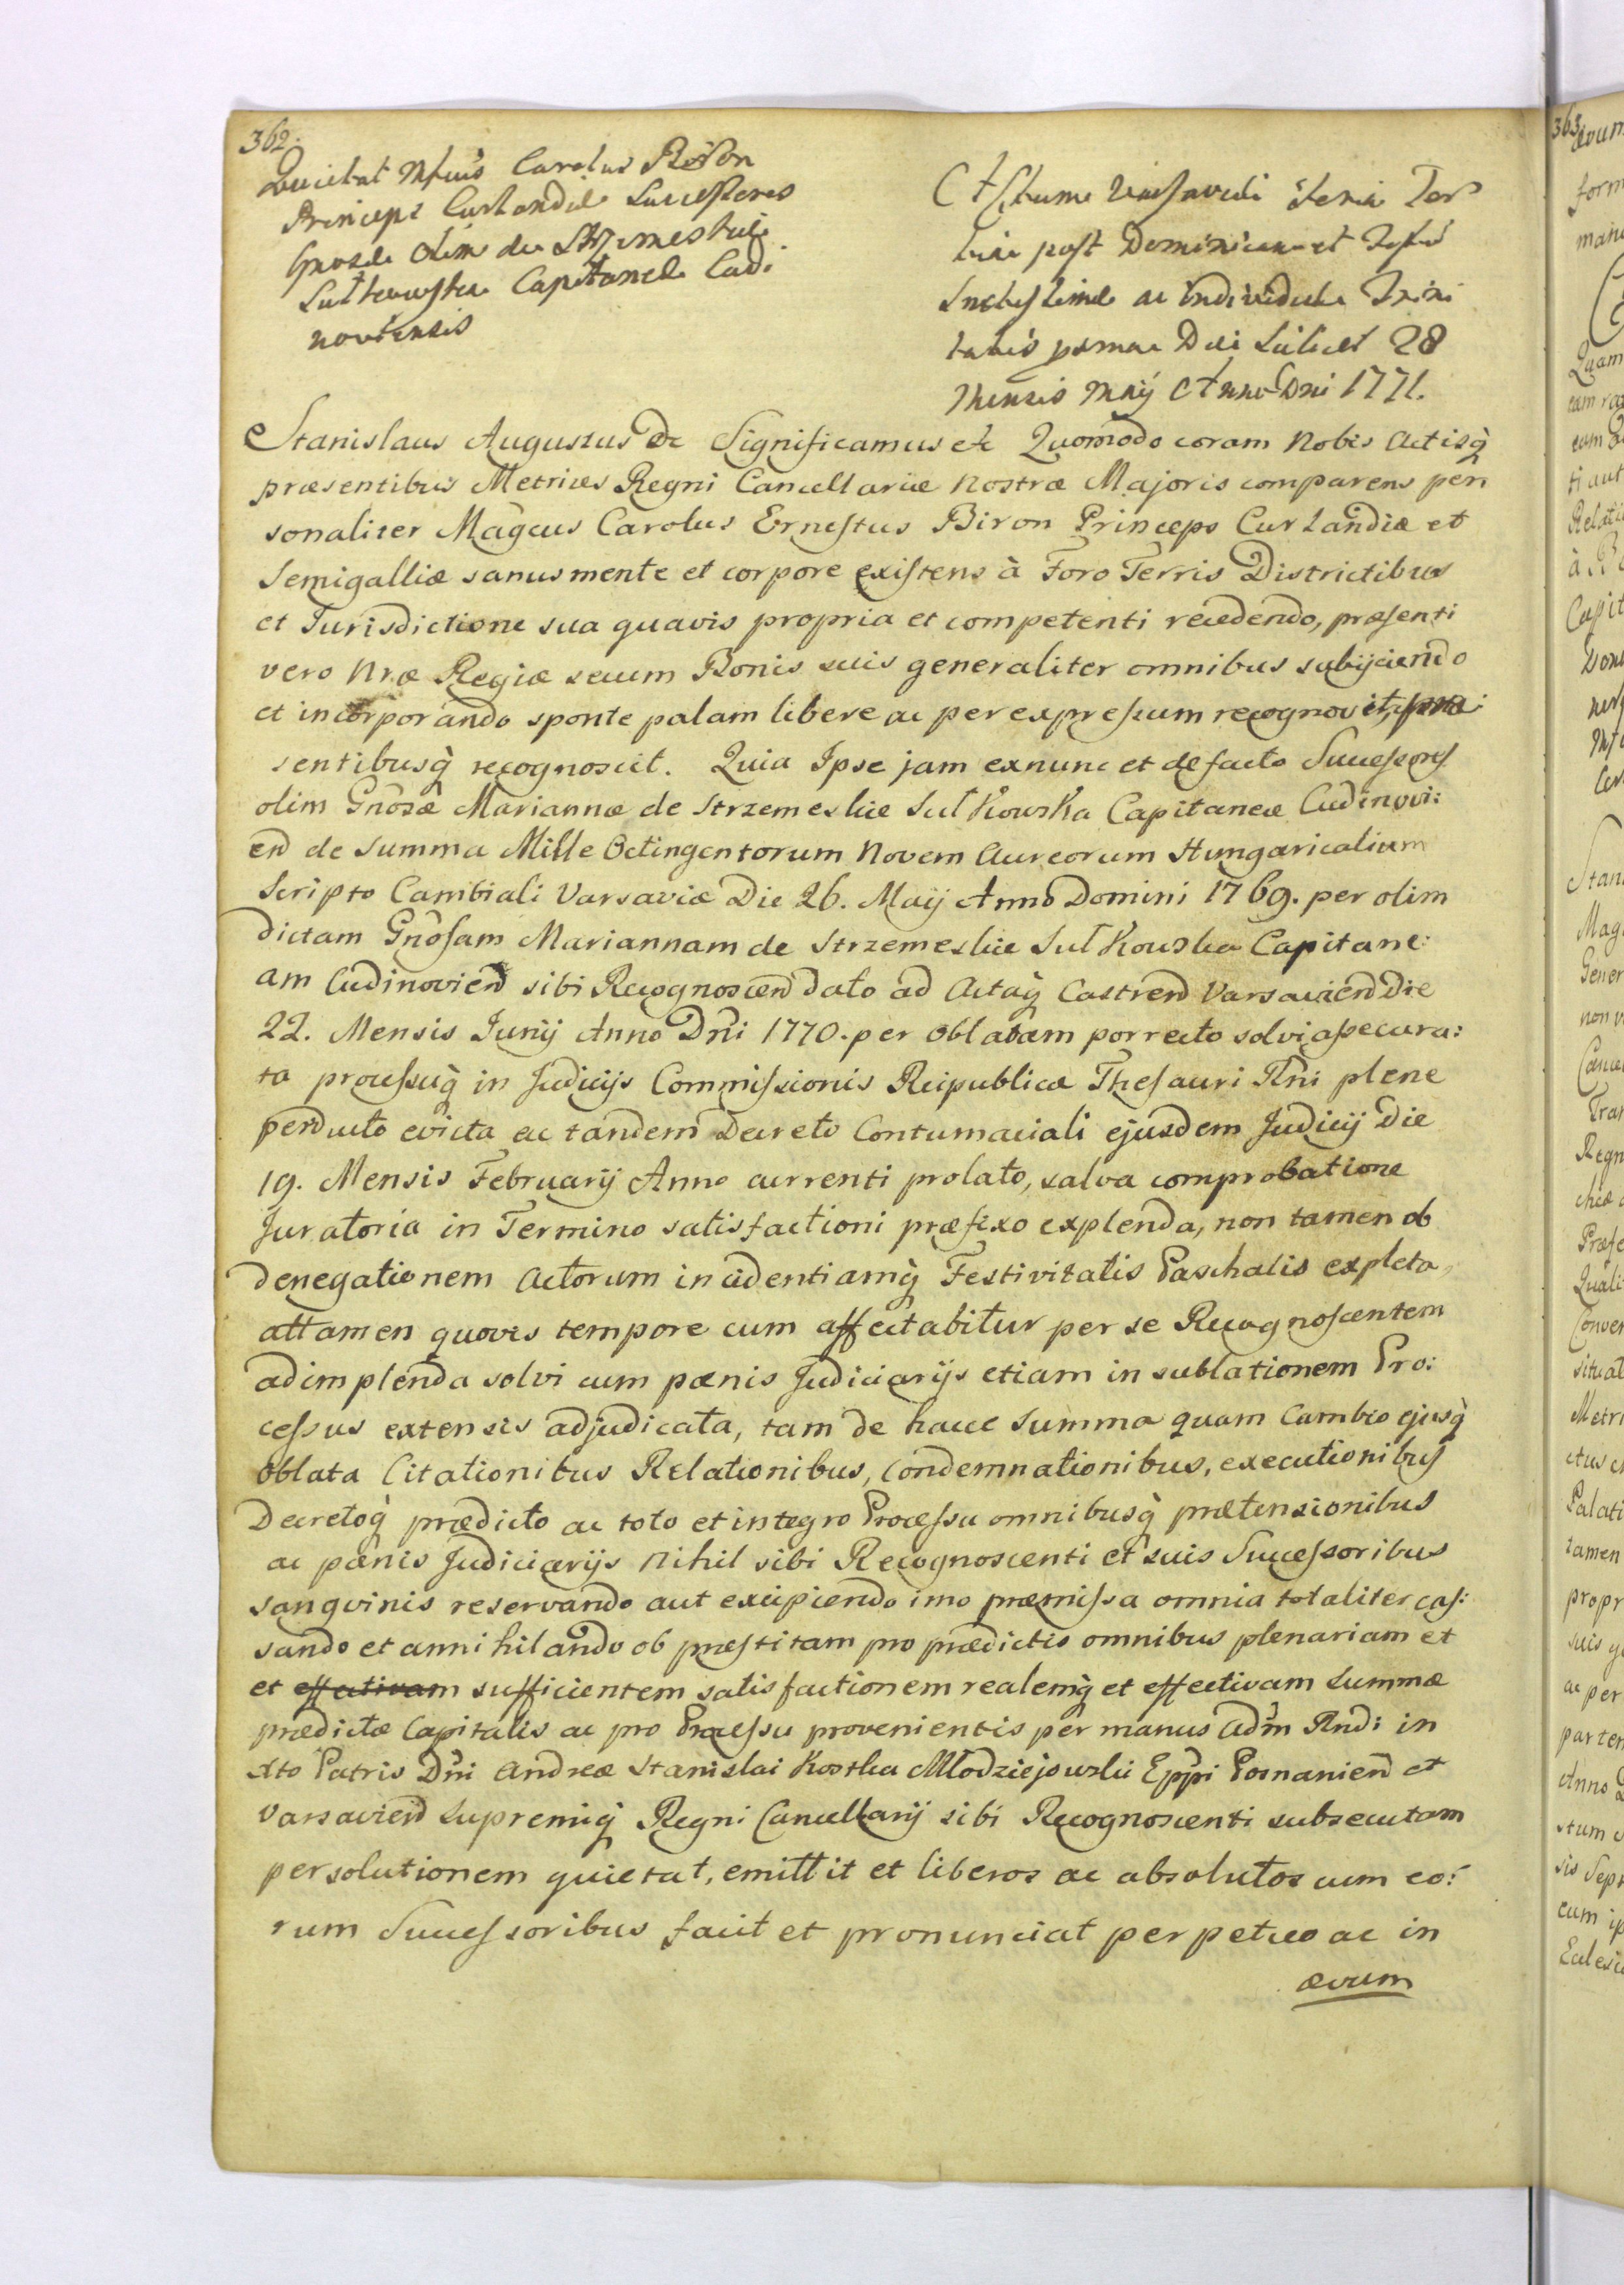 362.
Quietat Mfcus Carolus Biron
Princeps Curlandiæ Successores
Gnosæ olim de Strzemeskie
Sułkowska Capitaneæ Cudi:
noviensis
Actum Varsaviæ Feria Ter
tia post Dominicam et Festi
Sanctissimæ ac individuæ Trini
tatis proxima Die Scilicet 28
Mensis Maij Anno Dni 1771.
Stanislaus Augustus &c Significamus &c Quomodo coram Nobis Actisq̀
præsentibus Metrices Regni Cancellariæ Nostræ Majoris comparens per
sonaliter Magcus Carolus Ernestus Biron Princeps Curlandiæ et
Semigalliæ sanus mente et corpore existens à Foro Terris Districtibus
et Jurisdictione sua quavis propria et competenti recedendo, præsenti
vero Nræ Regiæ secum Bonis suis generaliter omnibus subijciendo
et incorporando sponte palam libere ac per expressum recognovit, præ:
sentibusq̀ recognoscit. Quia Ipse jam exnunc et de facto Successores
olim Gnosæ Mariannæ de Strzemeskie Sułkowska Capitaneæ Cudinovi:
en de Summa Mille Octingentorum Novem Aureorum Hungaricalium
Scripto Cambiali Varsaviæ Die 26. Maij Anno Domini 1769. per olim
dictam Gnosam Mariannam de Strzemeskie Sułkowska Capitane:
am Cudinovien sibi Recognoscen dato ad Actaq̀ Castren Varsavien Die
22. Mensis Junij Anno Dni 1770. per Oblatam porrecto solvi assecura:
ta processuq̀ in Judicijs Commissionis Reipublicæ Thesauri Rni plene
perducto evicta ac tandem Decreto Contumaciali ejusdem Judicij Die
19. Mensis Februarij Anno currenti prolato, salva comprobatione
Juratoria in Termino satisfactioni præfixo explenda, non tamen ob
denegationem Actorum incidentiamq̀ Festivitatis Paschalis expleta,
attamen quovis tempore cum affectabitur per se Recognoscentem
adimplenda solvi cum pœnis Judiciarijs etiam in sublationem Pro:
cessus extensis adjudicata, tam de hacce Summa quam Cambio ejusq̀
Oblata Citationibus Relationibus, Condemnationibus, executionibus
Decretoq̀ prædicto ac toto et integro Processu omnibusq̀ prætensionibus
ac pœnis Judiciarijs Nihil sibi Recognoscenti et suis Successoribus
sangvinis reservando aut excipiendo imo præmissa omnia totaliter cas:
sando et annihilando ob præstitam pro prædictis omnibus plenariam et
et effectivam sufficientem satisfactionem realemq̀ et effectivam Summæ
prædictæ Capitalis ac pro Processu provenientis per manus Adm Rndi in
Xto Patris Dni Andreæ Stanislai Kostka Młodziejowski Eppi Posnanien et
Varsavien Supremiq̀ Regni Cancellarij sibi Recognoscenti subsecutam
persolutionem quietat, emittit et liberos ac absolutos cum eo:
rum Successoribus facit et pronunciat perpetuo ac in
ævum